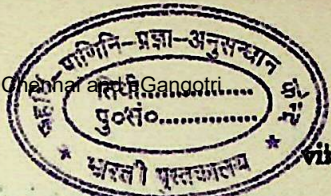 पाणिनि-प्रज्ञा-अनुसन्धान
Chennai and eGangotri
तिथि..................
पु०सं०..................
* भारती पुस्तकालय *